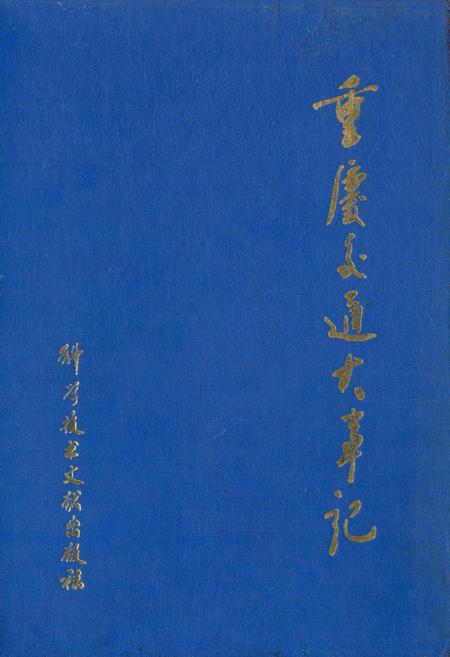 重慶交通大事记
科学技术文献出版社